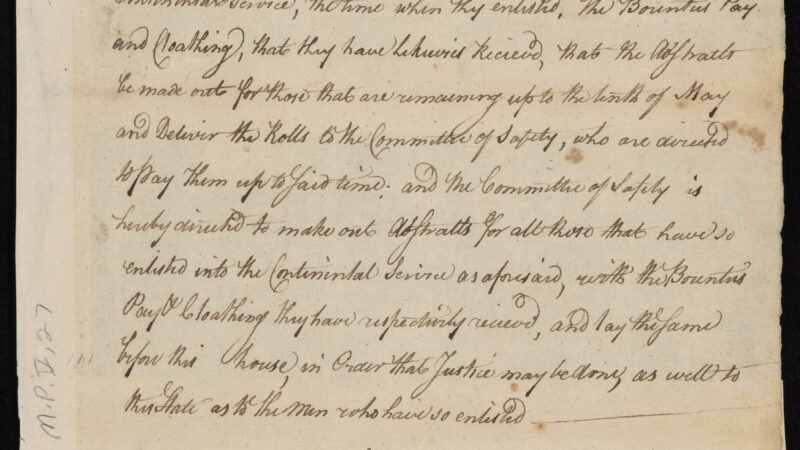 Continental Service, the time when they enlisted, the Bounties Pay
and Cloathing, that they have receievd, that the Abstratts
be made out for those that are remaining up to the tenth of May
and Deliver the Rolls to the Committe of Safety, who are directd
to pay them up to Said time: and the Committe of Safety is
hereby directd to make out Abstratts for all those that have so
enlistd into the Continental Service as aforesaid, with the Bounties
Pay & Cloathing they have respectively recievd, and lay the Same
before this house, in Order that Justice may be done, as well to
this State as to the men who have so enlistd
M.P. IV, 27